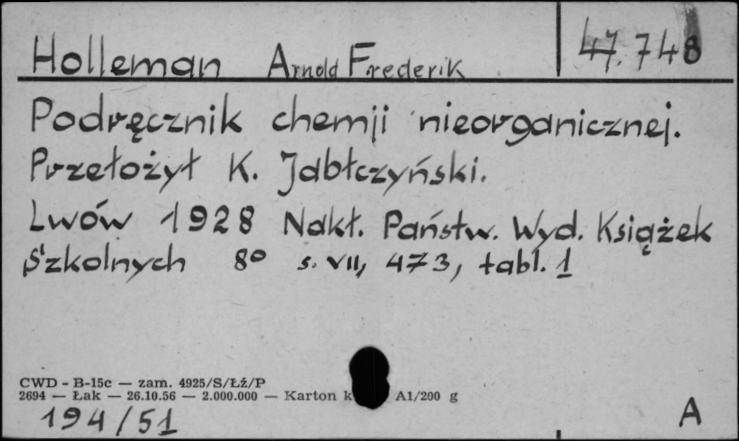 Holleman Arnold Frederik 47.748
Podręcznik chemji nieorganicznej.
Przełożył K. Jabłczyński.
Lwów 1928 Nakł. Państw. Wyd. Książek
Szkolnych 8° s. VII, 473, tabl. 1
CWD - B-15c — zam. 4925/S/Łź/P
2694 — Łak — 26.10.56 — 2.000.000 — Karton k A1/200 g
194/51 A